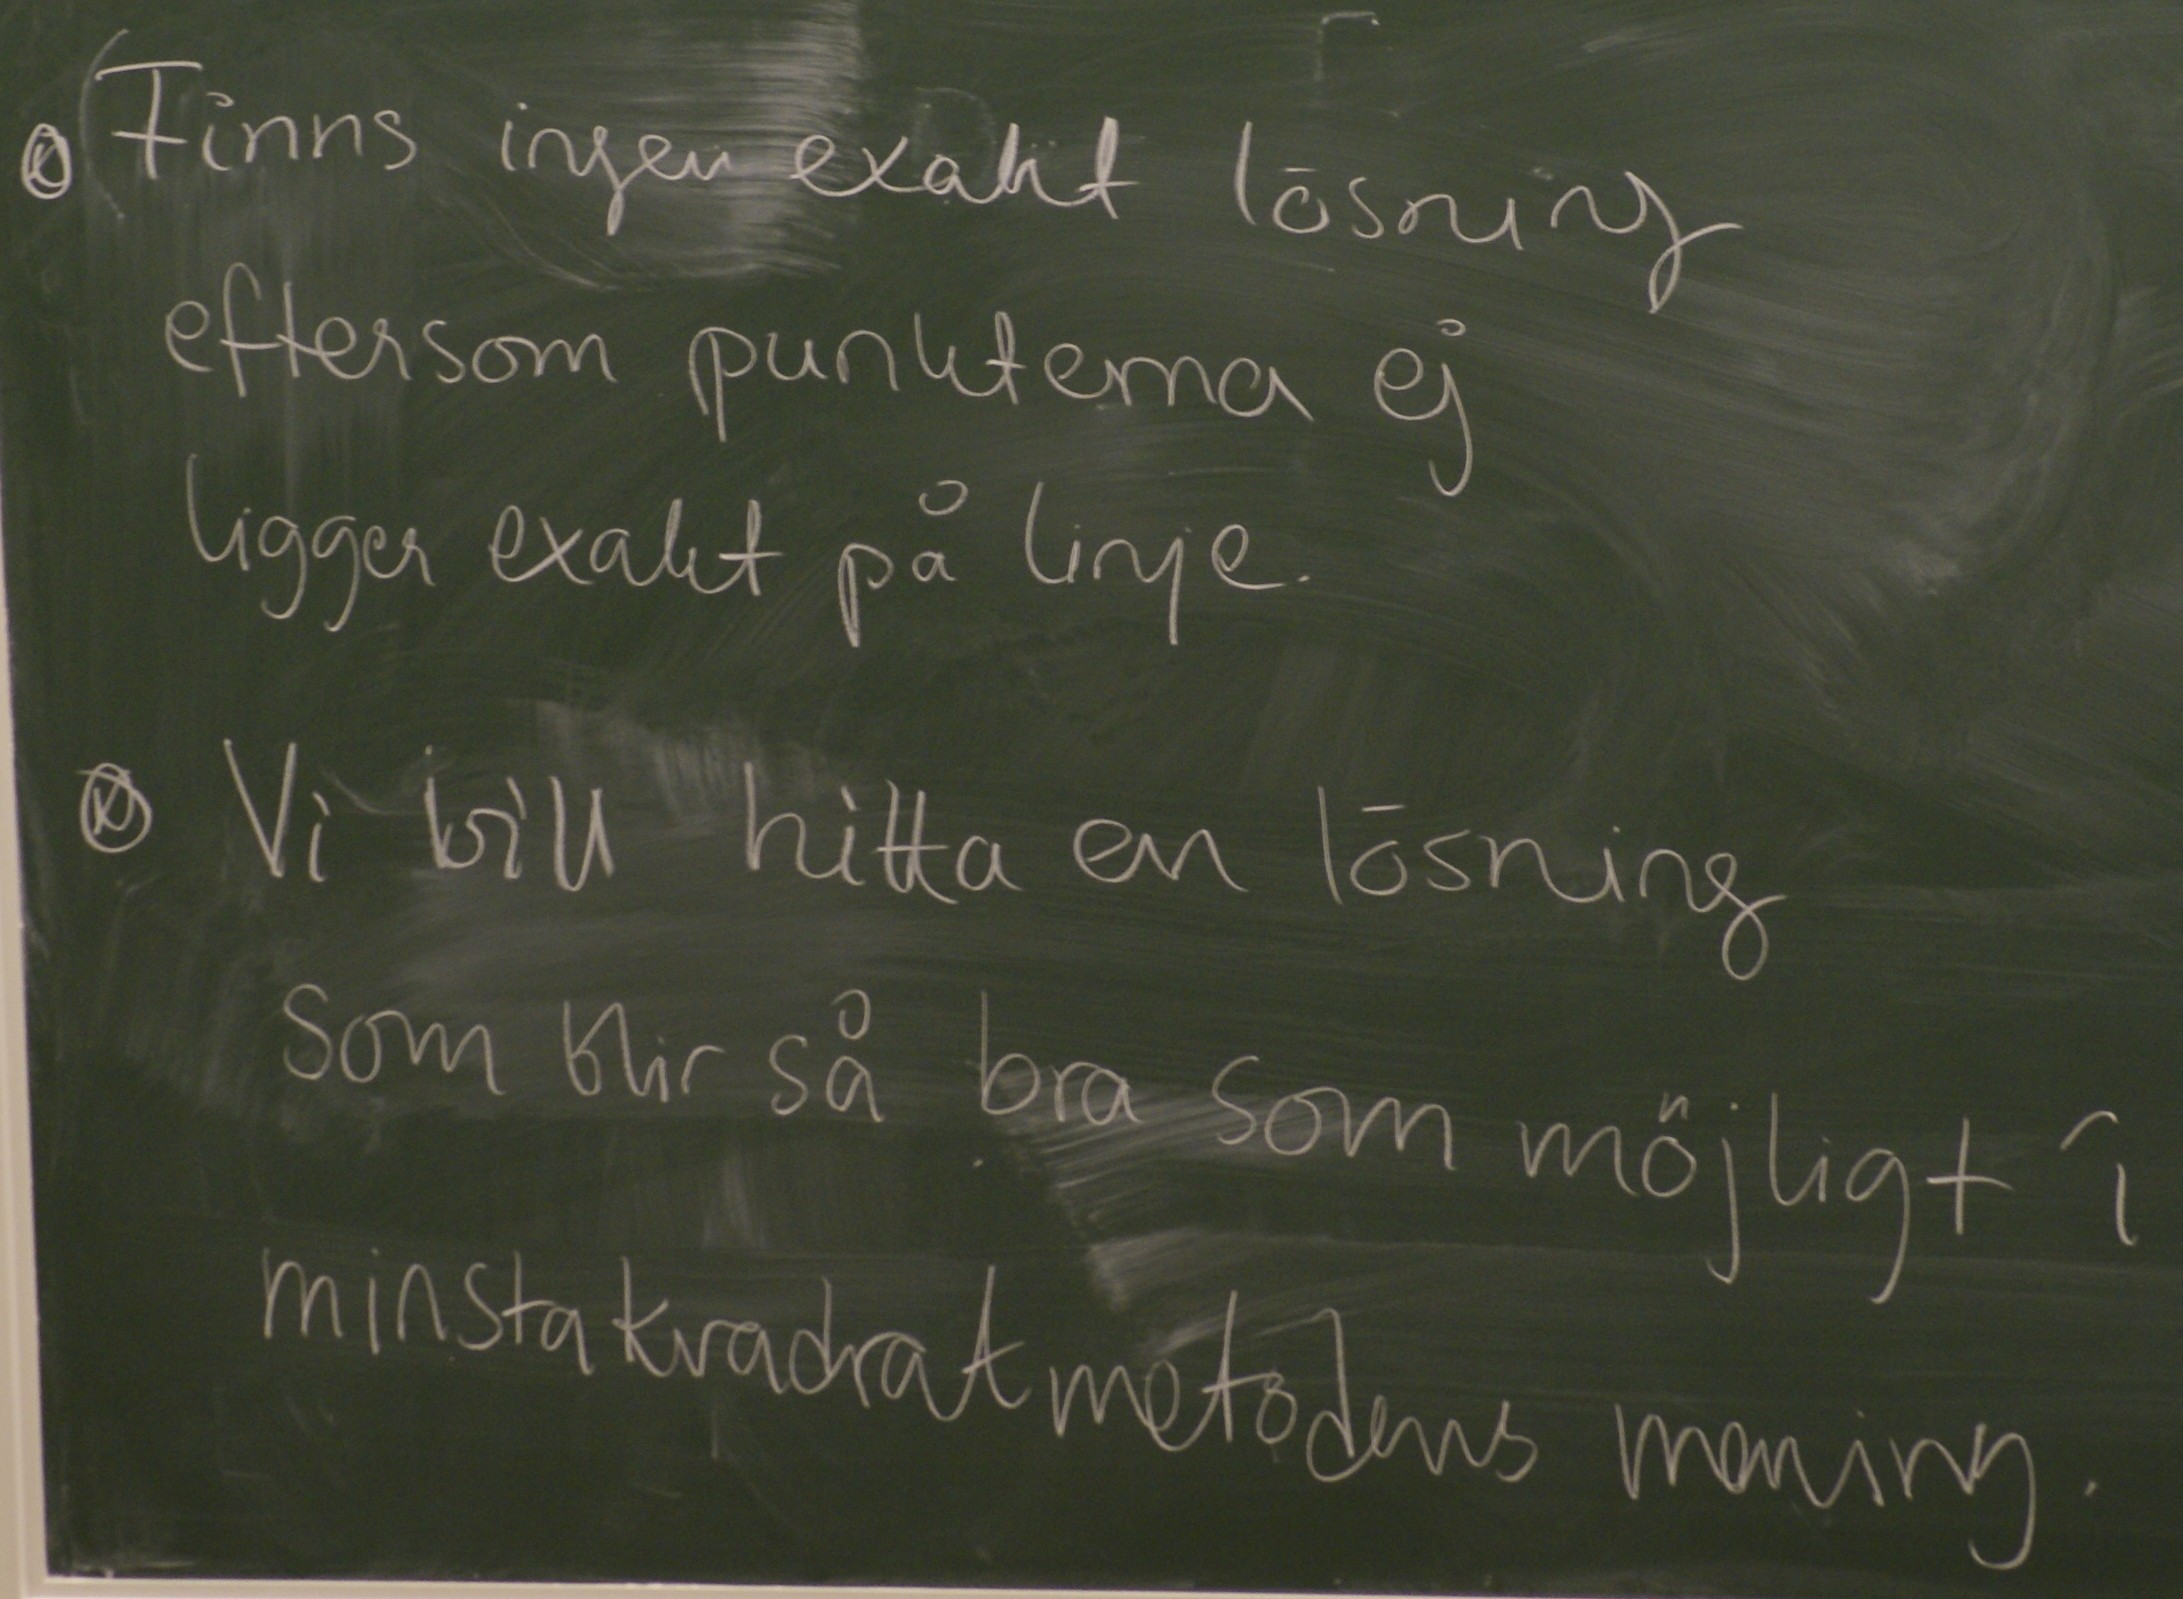 Finns ingen exakt lösning
eftersom punkterna ej
ligger exakt på linje.
Vi vill hitta en lösning
som blir så bra som möjligt i
minstakvadratmetodens mening.